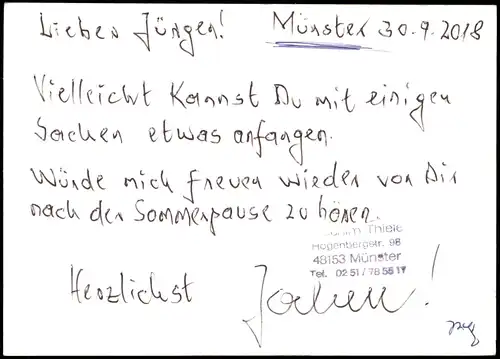 Lieber Jürgen! Münster 30.9.2018
Vielleicht kannst Du mit einigen
Sachen etwas anfangen.
Würde mich freuen wieder von Dir
nach der Sommerpause zu hören.
Thiele
48153 Münster
Tel. 02 51 / 78 55 17
Herzlichst Jochen!